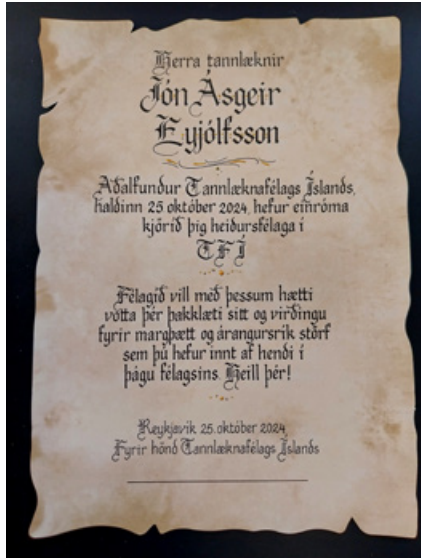 Herra tannlæknir
Jón Ásgeir
Eyjólfsson
Aðalfundur Tannlæknafélags Íslands,
haldinn 25 október 2024, hefur einróma
kjörið þig heiðursfélaga í
TFÍ
Félagið vill með þessum hætti
votta þér þakklæti sitt og virðingu
fyrir margþætt og árangursrík störf
sem þú hefur innt af hendi í
þágu félagsins. Heill þér!
Reykjavík 25. október 2024
Fyrir hönd Tannlæknafélags Íslands